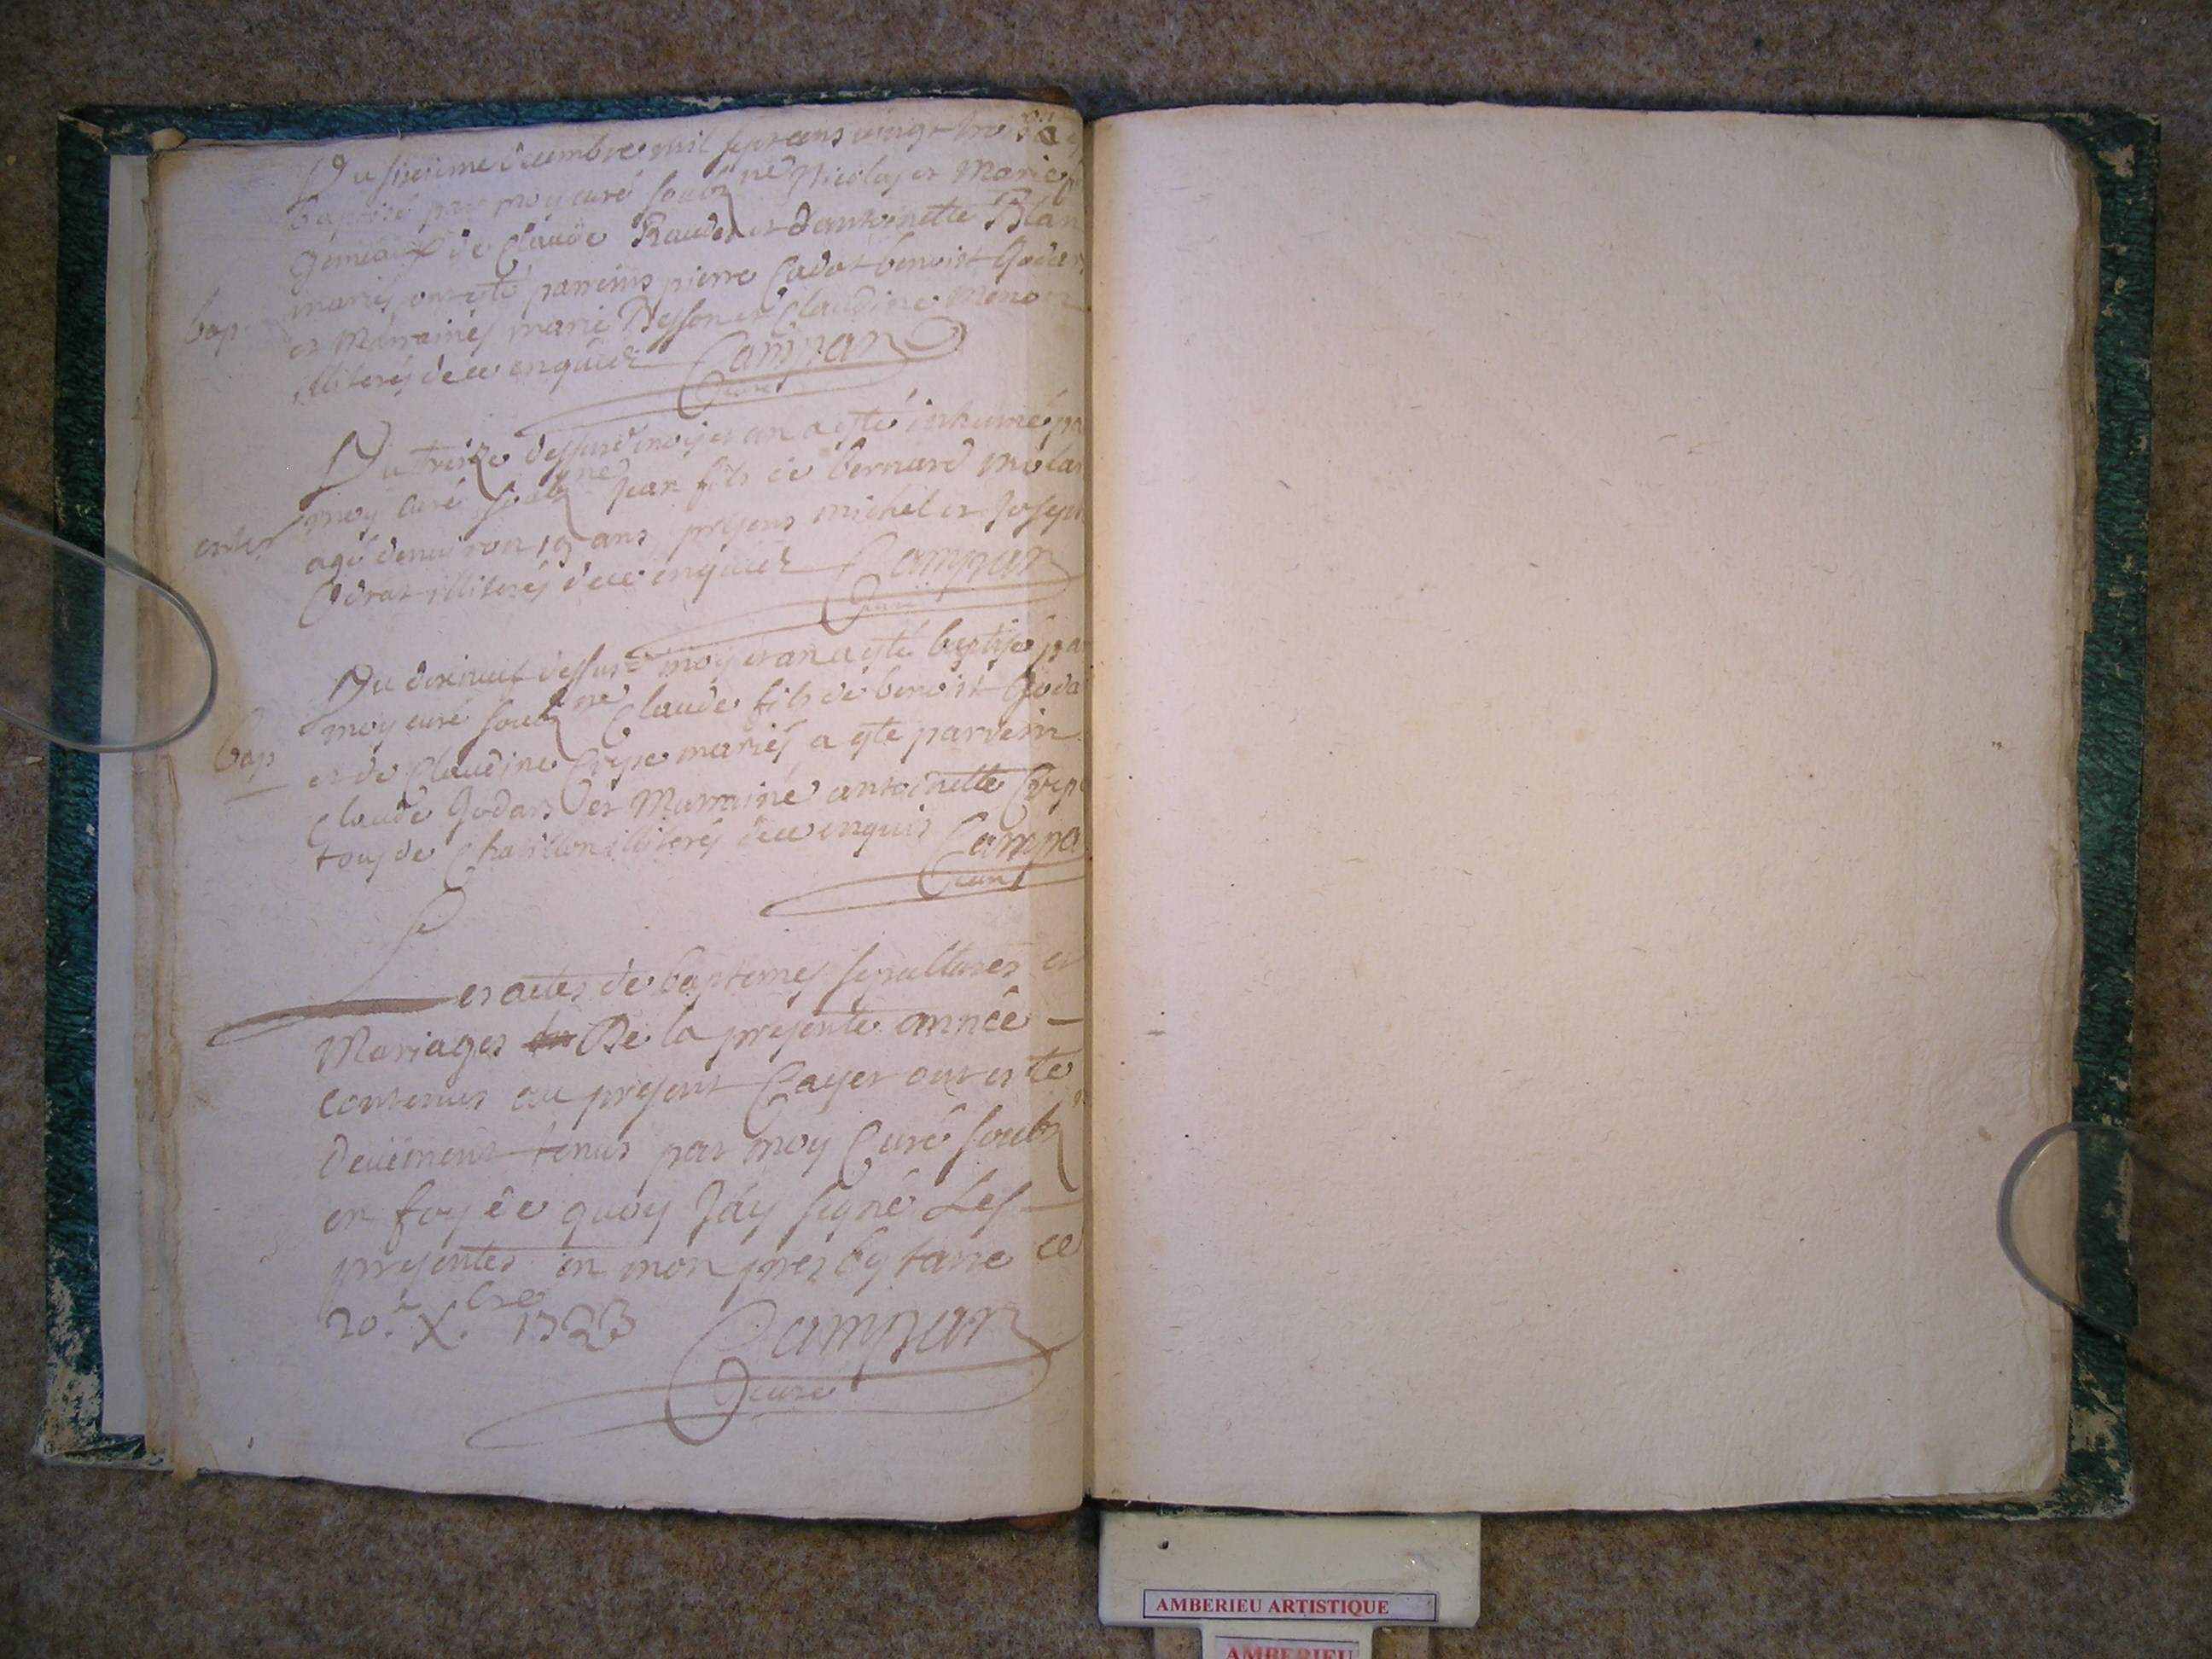 Du sixieme decembre mil sept cens vingt trois
baptisé par moy curé soubz né Nicolas et Marie
Gemeaux de Claude Raudet et d'antoinette Blan
mariés ont esté parreins pierre Cadot benoist Godar
bap.
et Marraines marie Besson et Claudine
illiterés de ce enquis
Campan
curé
Du treize dessusd moy et an a esté inhumé par
moy curé soubz né Jean fils de bernard molar
enter
agé denviron 19 ans, presens michel et Joseph
illiterés de ce enquis
Campan
curé
Du dixneuf dessusd moy et an a esté baptisé par
moy curé soubz né Claude fils de benoist Goda
bap
et de Claudine Crepe mariés, a esté parrein
Claude Godars et Marraine antoinette Crepe
tous de Chatillon illiterés de ce enquis
Campa
curé
Les actes de baptemes sepultures et
Mariages De la presente année
contenus au present Cayer ont esté
deüement tenus par moy Curé soubz
en foy de quoy J'ay signé Les
presentes en mon presbytaire ce
20.e X.bre 1723
Campan
curé
AMBERIEU ARTISTIQUE
AMBERIEU